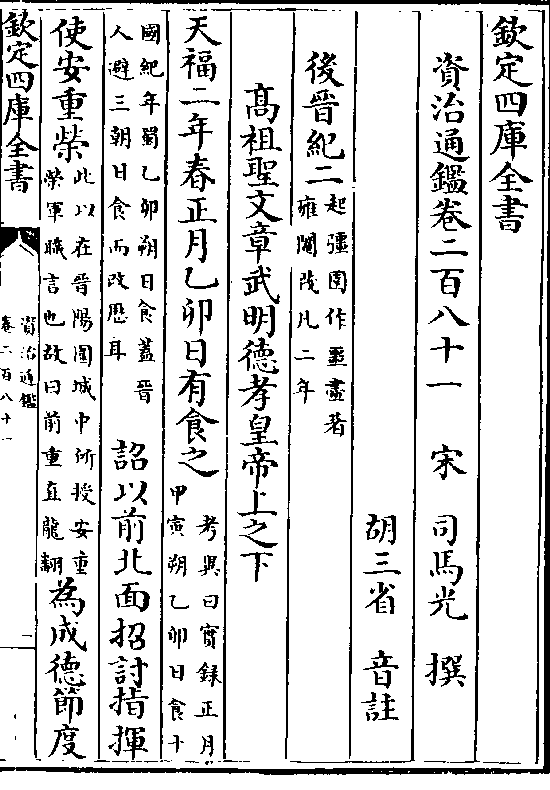 欽定四庫全書
資治通鑑卷二百八十一　宋　司馬光　撰
胡三省　音註
後晉紀二起彊圉作噩盡著
雍閹茂凡二年
高祖聖文章武明德孝皇帝上之下
天福二年春正月乙卯日有食之考異曰實録正月
甲寅朔乙卯日食十
國紀年蜀乙卯朔日食蓋晉
人避三朝日食而改厯耳
詔以前北面招討指揮
使安重榮此以在晉陽圍城中所授安重
榮軍職言也故曰前重直龍翻
為成德節度
欽定四庫全書
資治通鑑
卷二百八十一
一